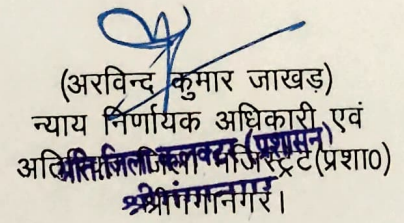 (अरविन्द कुमार जाखड़)
न्याय निर्णायक अधिकारी एवं
अति० जिला मजिस्ट्रेट(प्रशा०)
श्रीगंगानगर।
अति. जिला कलक्टर (प्रशासन)
श्रीगंगानगर